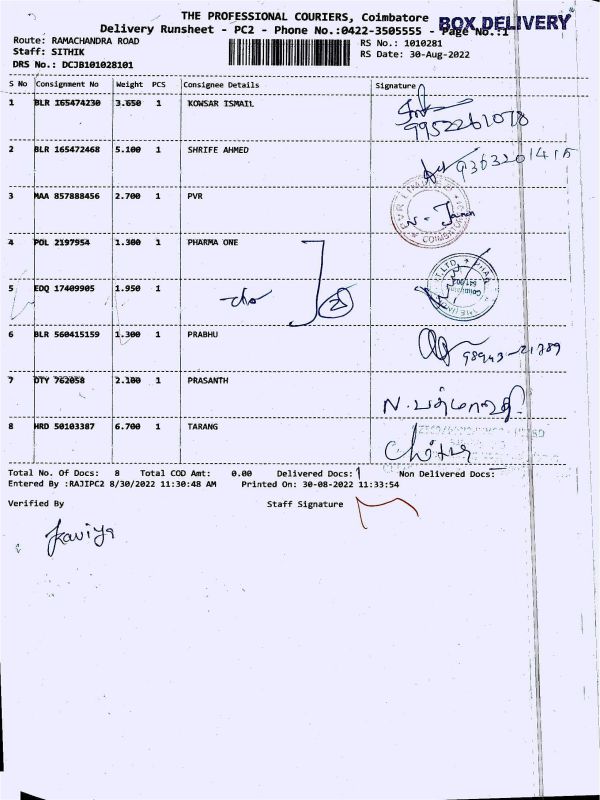 THE PROFESSIONAL COURIERS, Coimbatore
BOX DELIVERY
Delivery Runsheet - PC2 - Phone No.:0422-3505555 - Page No.:1
Route: RAMACHANDRA ROAD
RS No.: 1010281
Staff: SITHIK
RS Date: 30-Aug-2022
DRS No.: DCJB101028101
S No Consignment No Weight PCS Consignee Details Signature
1 BLR 165474230 3.650 1 KOWSAR ISMAIL
9952261078
2 BLR 165472468 5.100 1 SHRIFE AHMED
9363201415
3 MAA 857888456 2.700 1 PVR
PVR LIMITED
COIMBATORE
4 POL 2197954 1.300 1 PHARMA ONE
5 EDQ 17409905 1.950 1
2
6 BLR 560415159 1.300 1 PRABHU
98943-21789
7 DTY 762058 2.100 1 PRASANTH
N.
8 HRD 50103387 6.700 1 TARANG
Total No. Of Docs: 8 Total COD Amt: 0.00 Delivered Docs: Non Delivered Docs:
Entered By :RAJIPC2 8/30/2022 11:30:48 AM Printed On: 30-08-2022 11:33:54
Verified By Staff Signature
Kaviya